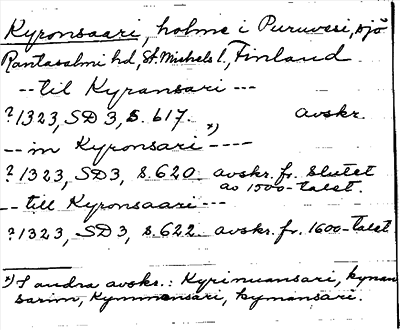 Kyronsaari, holme i Puruvesi, sjö
Rantasalmi hd, St Michels l., Finland
-- til Kyransari ---
? 1323, SD 3, s. 617. avskr.
--- in Kyronsari *) ----
? 1323, SD 3, s. 620 avskr. fr. slutet
av 1500-talet.
-- till Kyronsaari ---
? 1323, SD 3, s. 622 avskr. fr. 1600-talet
*) I andra avskr.: Kyrinuansari, kynan
sarim, Kymmensari, kynansari.